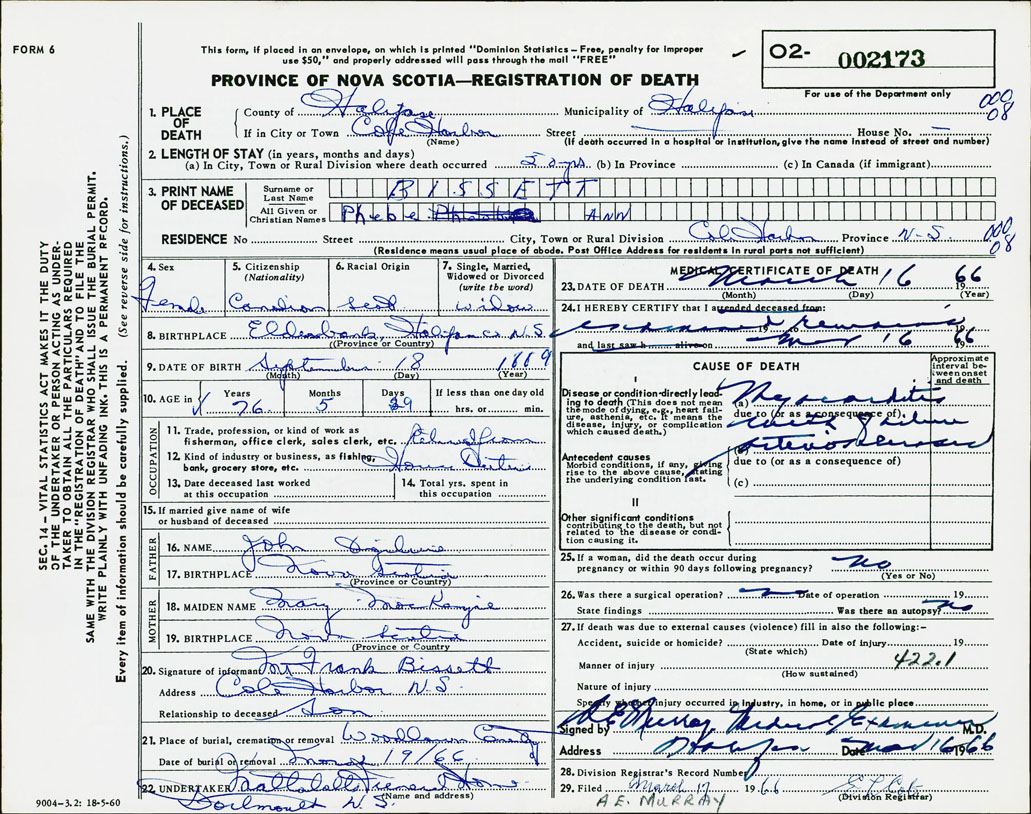 FORM 6
This form, if placed in an envelope, on which is printed "Dominion Statistics – Free, penalty for improper
use $50," and properly addressed will pass through the mail "FREE"
PROVINCE OF NOVA SCOTIA—REGISTRATION OF DEATH
O2- 002173
For use of the Department only
000
08
1. PLACE OF DEATH
County of Halifax Municipality of Halifax
If in City or Town Cole Harbor Street House No. –
(Name) (If death occurred in a hospital or institution, give the name instead of street and number)
2. LENGTH OF STAY (in years, months and days)
(a) In City, Town or Rural Division where death occurred 50 yrs (b) In Province (c) In Canada (if immigrant)
3. PRINT NAME OF DECEASED
Surname or Last Name BISSETT
All Given or Christian Names Phebie ANN
RESIDENCE No Street City, Town or Rural Division Cole Harbor Province N-S
000
08
(Residence means usual place of abode. Post Office Address for residents in rural parts not sufficient)
4. Sex
5. Citizenship (Nationality)
6. Racial Origin
7. Single, Married, Widowed or Divorced (write the word)
Female Canadian Scot Widow
8. BIRTHPLACE Halifax Co N.S
(Province or Country)
9. DATE OF BIRTH September 18 1889
(Month) (Day) (Year)
10. AGE in Years Months Days If less than one day old
76 5 29 hrs. or min.
OCCUPATION
11. Trade, profession, or kind of work as
fisherman, office clerk, sales clerk, etc.
12. Kind of industry or business, as fishing,
bank, grocery store, etc. House Duties
13. Date deceased last worked
at this occupation
14. Total yrs. spent in
this occupation
15. If married give name of wife
or husband of deceased
FATHER
16. NAME John
17. BIRTHPLACE Nova Scotia
(Province or Country)
MOTHER
18. MAIDEN NAME Mary MacKenzie
19. BIRTHPLACE Nova Scotia
(Province or Country)
20. Signature of informant Frank Bissett
Address Cole Harbor N.S.
Relationship to deceased Son
21. Place of burial, cremation or removal Woodlawn
Date of burial or removal March 19/66
22. UNDERTAKER Funeral Home
(Name and address)
Dartmouth N.S.
9004-3.2: 18-5-60
MEDICAL CERTIFICATE OF DEATH
23. DATE OF DEATH March 16 1966
(Month) (Day) (Year)
24. I HEREBY CERTIFY that I attended deceased from:
examined remains
19 to 19
and last saw h alive on Mar 16 1966
CAUSE OF DEATH
Approximate interval between onset and death
I
Disease or condition directly leading to death (This does not mean the mode of dying, e.g., heart failure, asthenia, etc. It means the disease, injury, or complication which caused death.)
(a) Myocarditis
due to (or as a consequence of).
with failure
Antecedent causes
Morbid conditions, if any, giving rise to the above cause, stating the underlying condition last.
due to (or as a consequence of)
(c)
II
Other significant conditions
contributing to the death, but not related to the disease or condition causing it.
25. If a woman, did the death occur during
pregnancy or within 90 days following pregnancy? No
(Yes or No)
26. Was there a surgical operation? No Date of operation 19
State findings Was there an autopsy? No
27. If death was due to external causes (violence) fill in also the following:–
Accident, suicide or homicide? Date of injury 19
(State which)
Manner of injury 422.1
(How sustained)
Nature of injury
Specify whether injury occurred in industry, in home, or in public place
Signed by A E Murray Medical Examiner M.D.
Address Halifax Date Mar 16 1966
28. Division Registrar's Record Number
29. Filed March 17 1966
(Division Registrar)
A.E. MURRAY
SEC. 14 – VITAL STATISTICS ACT MAKES IT THE DUTY
OF THE UNDERTAKER OR PERSON ACTING AS UNDER-
TAKER TO OBTAIN ALL THE PARTICULARS REQUIRED
IN THE "REGISTRATION OF DEATH" AND TO FILE THE
SAME WITH THE DIVISION REGISTRAR WHO SHALL ISSUE THE BURIAL PERMIT.
WRITE PLAINLY WITH UNFADING INK. THIS IS A PERMANENT RECORD.
Every item of information should be carefully supplied. (See reverse side for instructions.)